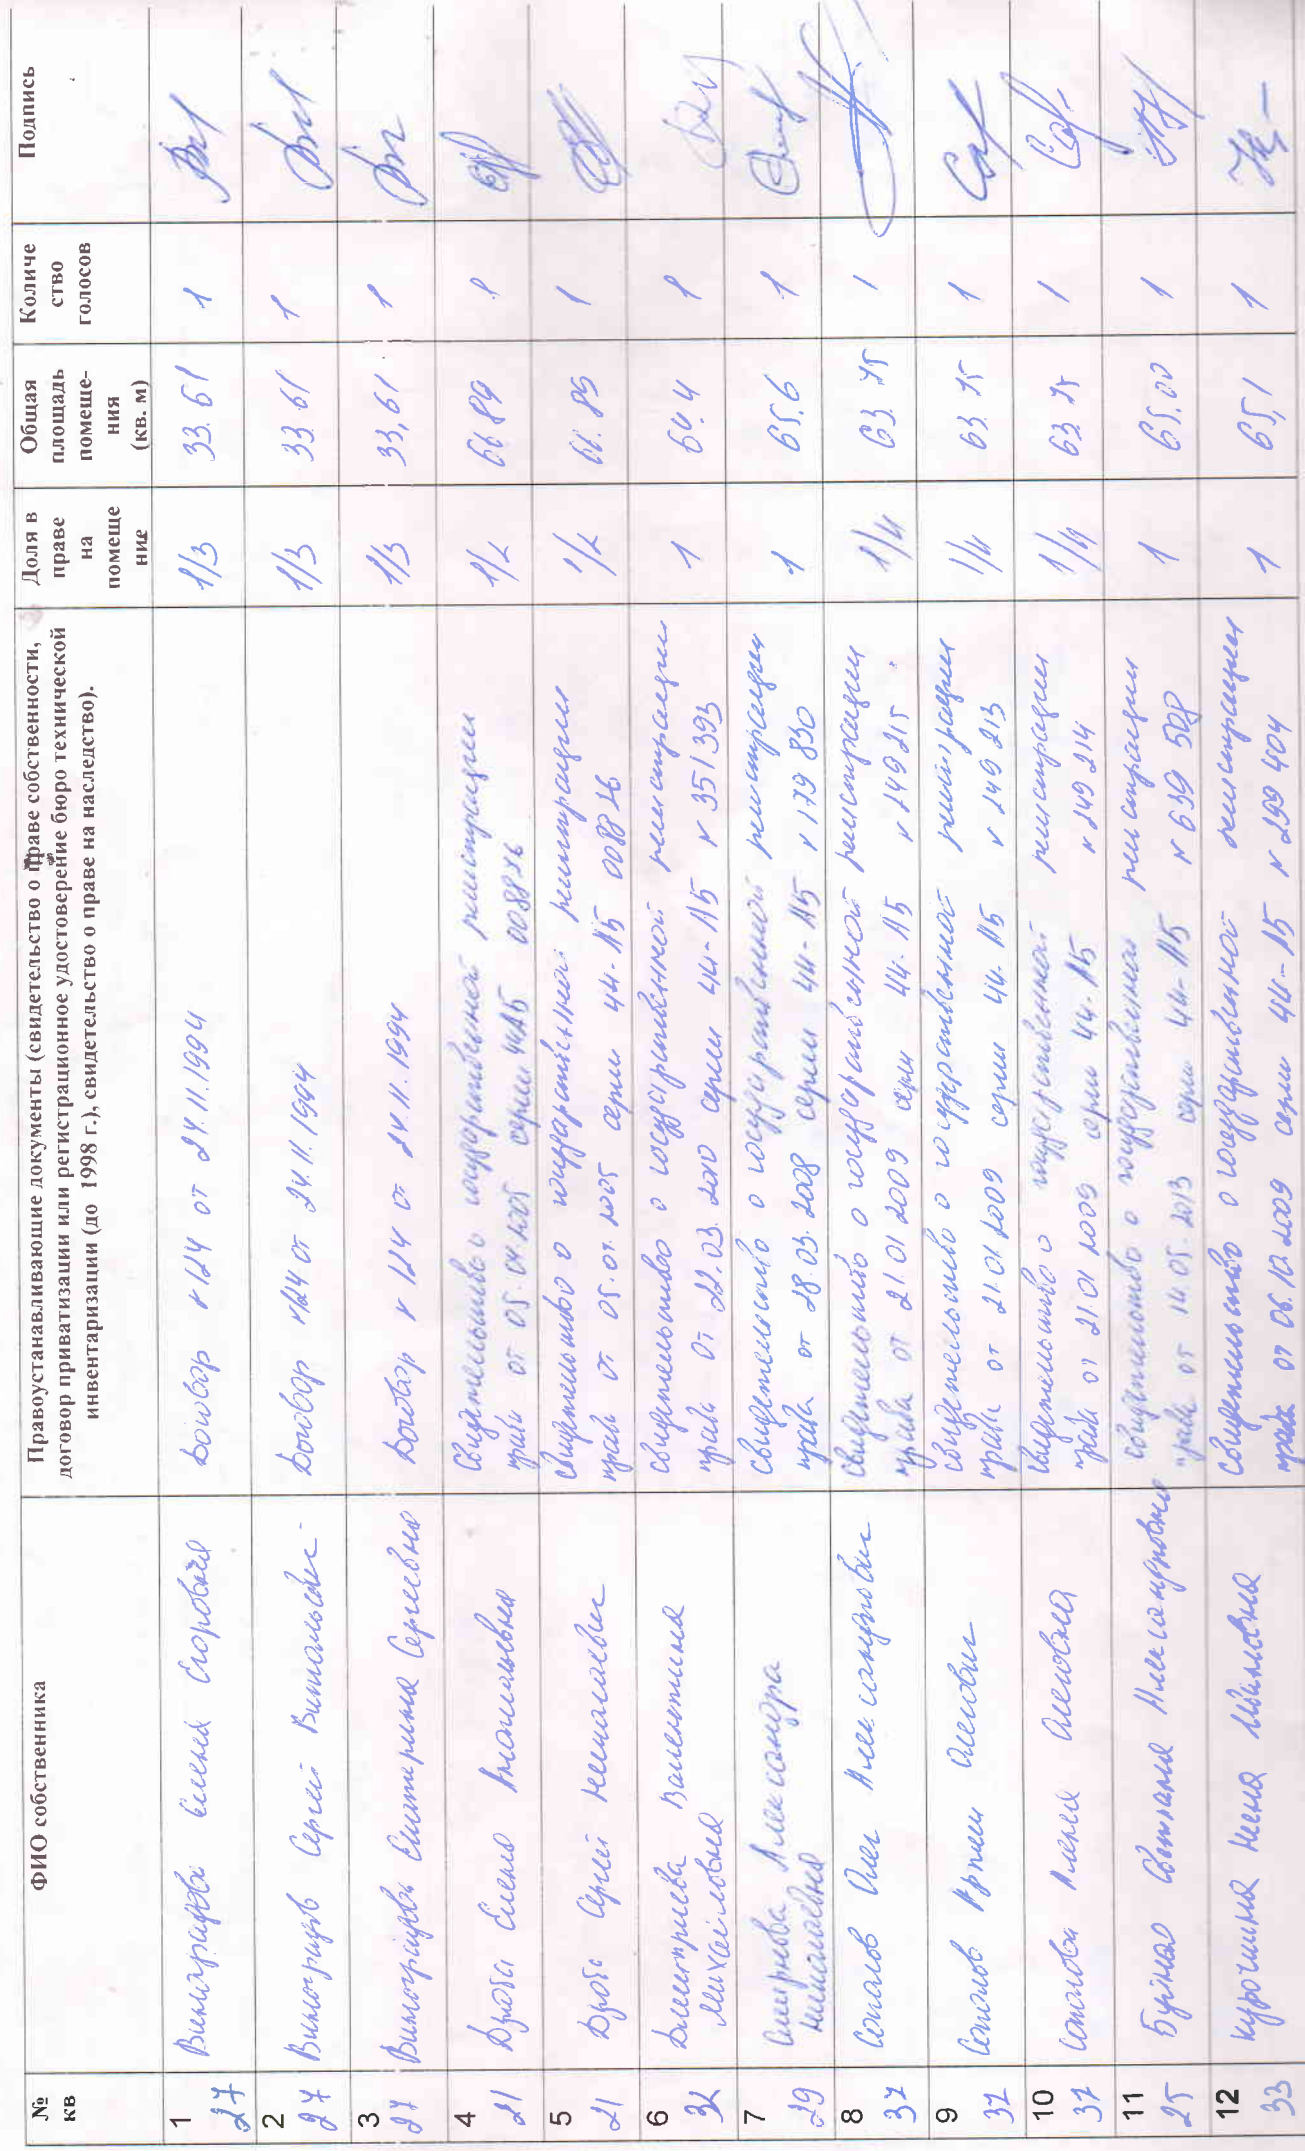 № кв
ФИО собственника
Правоустанавливающие документы (свидетельство о праве собственности, договор приватизации или регистрационное удостоверение бюро технической инвентаризации (до 1998 г.), свидетельство о праве на наследство).
Доля в праве на помеще ние
Общая площадь помеще- ния (кв. м)
Количе ство голосов
Подпись
1
27
Виноградова Елена Егоровна
Договор № 124 от 24.11.1994
1/3
33.61
1
2
27
Виноградов Сергей Витальевич
Договор №124 от 24.11.1994
1/3
33.61
1
3
27
Виноградова Екатерина Сергеевна
Договор № 124 от 24.11.1994
1/3
33,61
1
4
21
Дроба Елена
Свидетельство о государственной регистрации
права от 05.04.2005 серии 44АБ 008876
1/2
66.89
1
5
21
Дроба Сергей Николаевич
свидетельство о государственной регистрации
права от 2005 серии 44-АБ
1/2
66.89
1
6
32
Дмитриева Валентина
Михайловна
свидетельство о государственной регистрации
права от 22.03.2010 серии 44-АБ № 351393
1
64.4
1
7
29
Смирнова Александра
Николаевна
свидетельство о государственной регистрации
права от 28.03.2008 серии 44-АБ № 179 830
1
65.6
1
8
37
Олег Александрович
свидетельство о государственной регистрации
права от 21.01.2009 серии 44-АБ № 249215
1/4
63.75
1
9
37
Артем Олегович
свидетельство о государственной регистрации
права от 21.01.2009 серии 44-АБ № 249 213
1/4
63.75
1
10
37
Алена Олеговна
свидетельство о государственной регистрации
права от 21.01.2009 серии 44-АБ № 249 214
1/4
63.75
1
11
25
Светлана Александровна
свидетельство о государственной регистрации
права от 14.05.2013 серии 44-АБ № 639 508
1
65.00
1
12
33
Курочкина Нина Ивановна
свидетельство о государственной регистрации
права от 06.10.2009 серии 44-АБ № 299 404
1
65,1
1